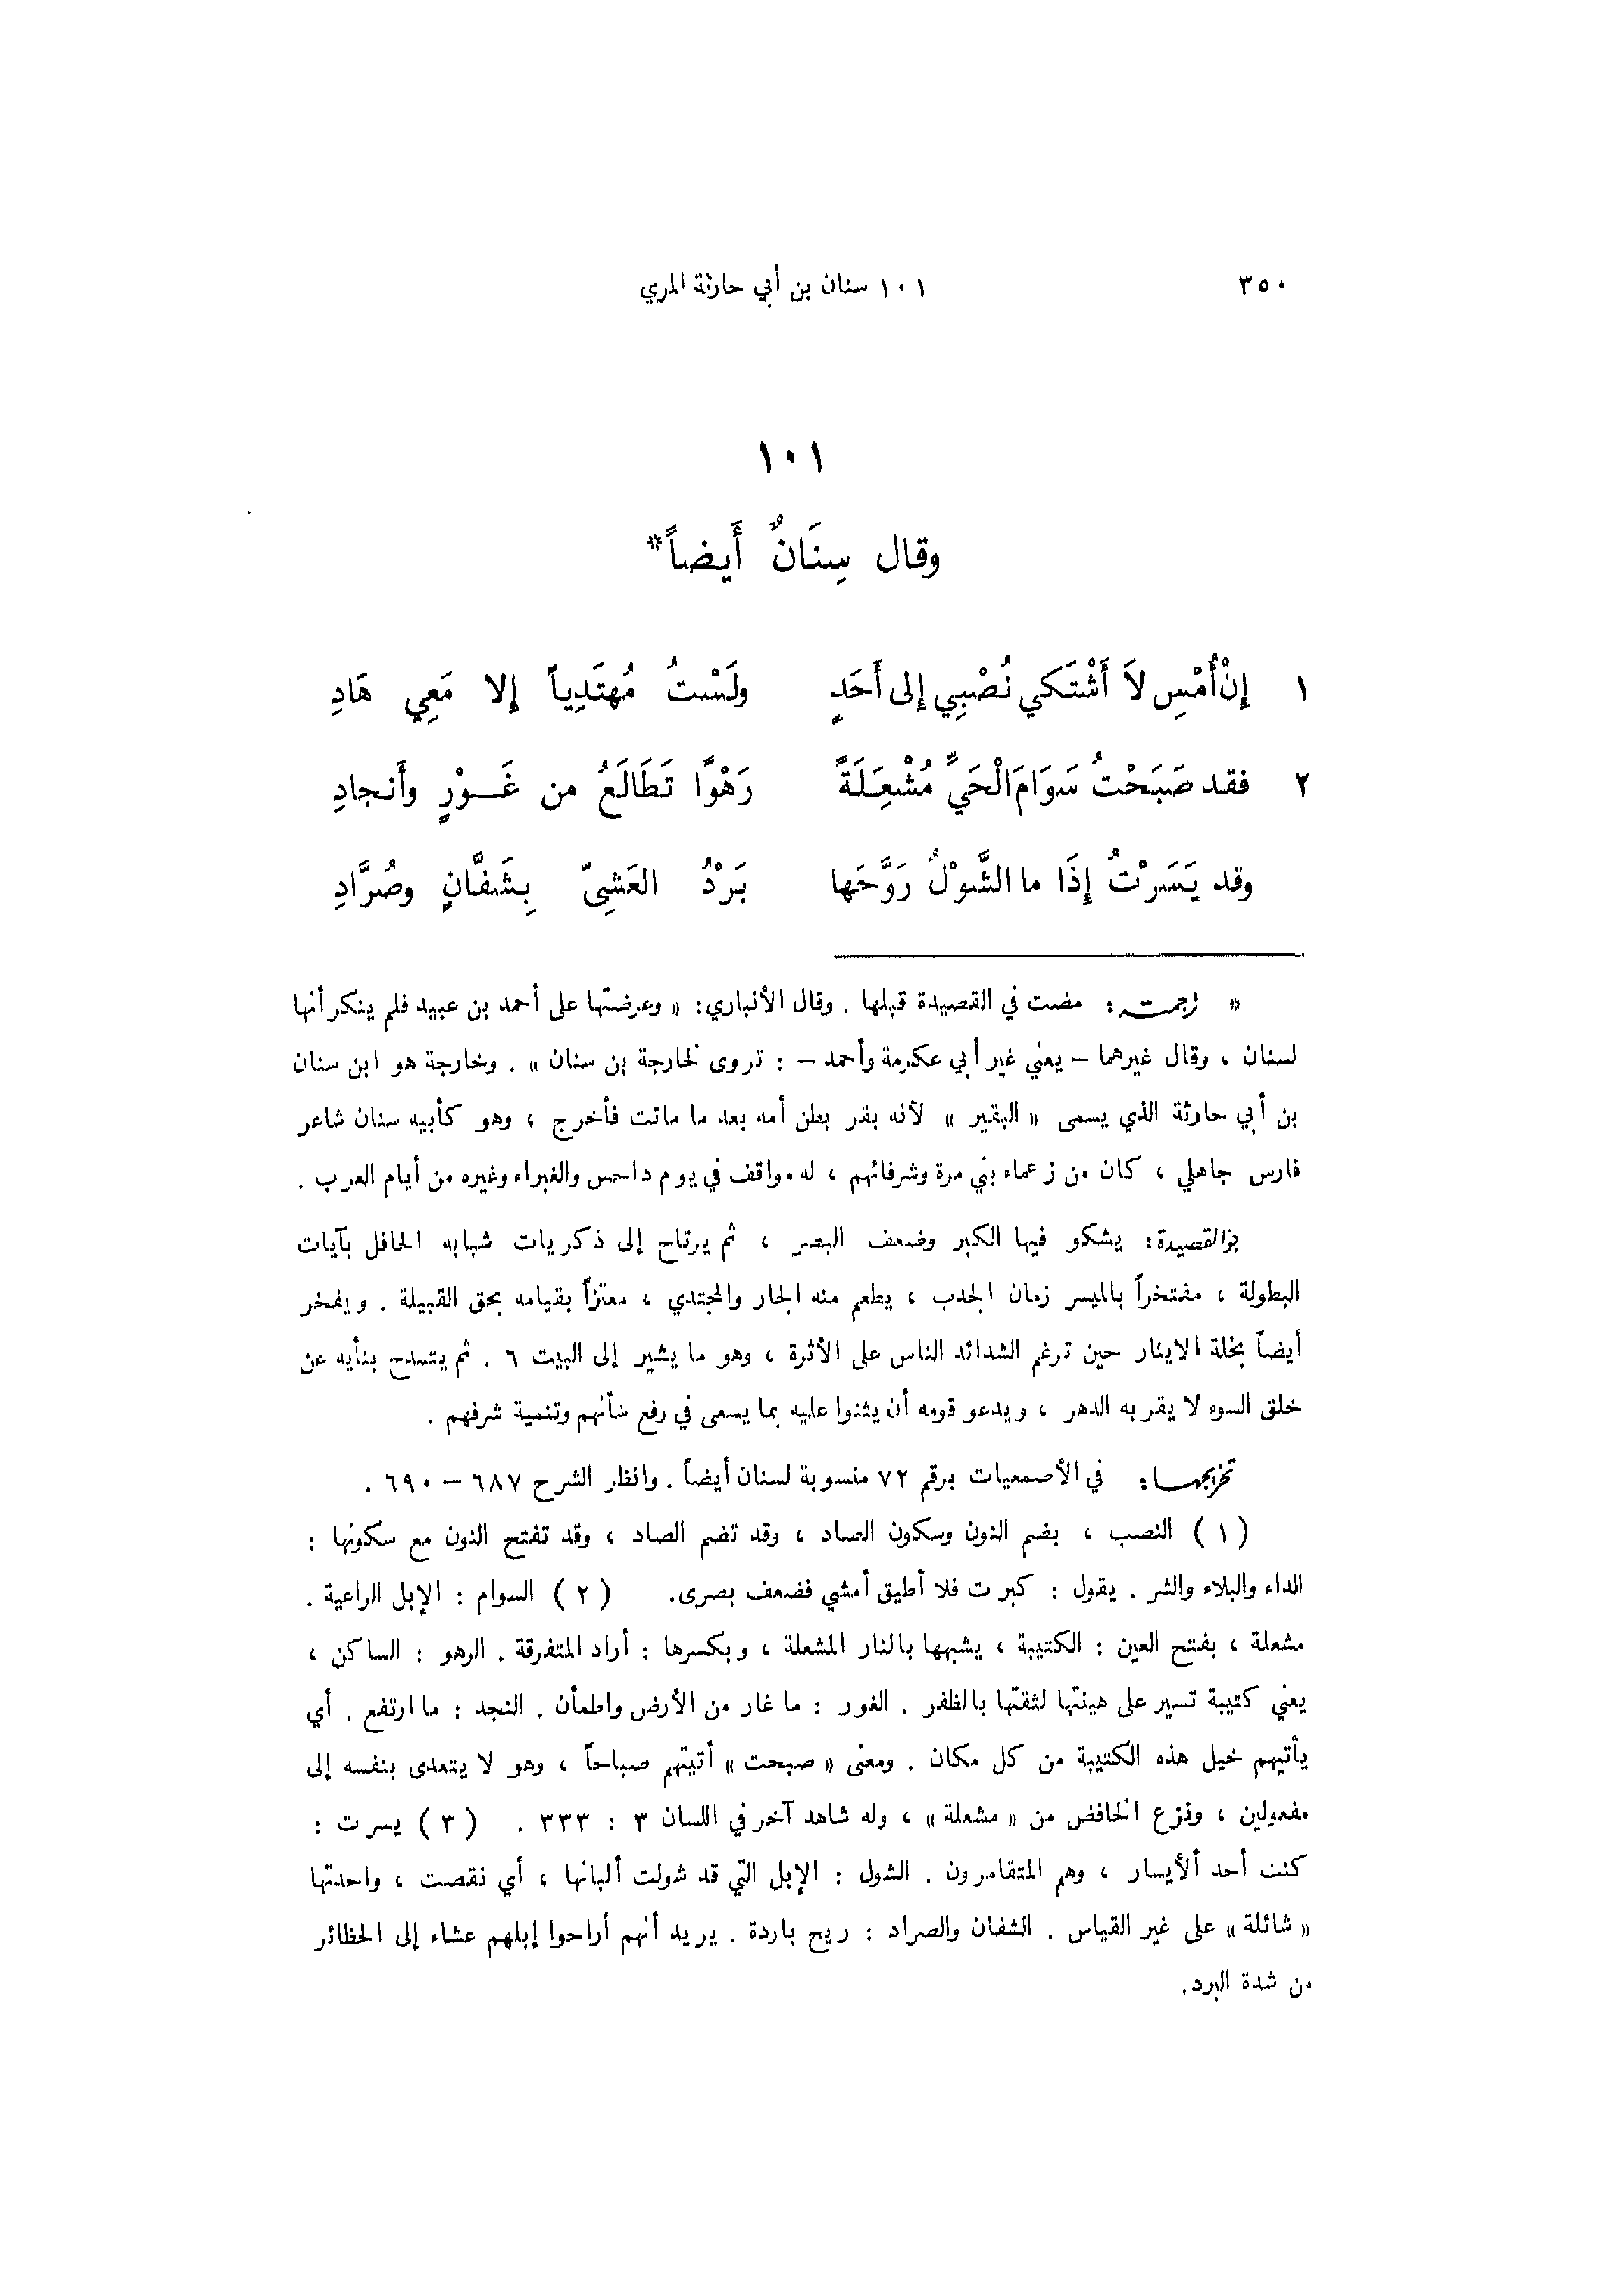 ٣٥٠ ١٠١ سنان بن أبي حارثة المري
١٠١
وقال سِنَانٌ أَيضاً*
١ إِنْ أُمْسِ لاَ أَشْتَكي نُصْبِي إِلى أَحَدٍ ولَسْتُ مُهتَدِياً إِلا مَعِي هَادِ
٢ فقد صَبَحْتُ سَوَامَ الْحَيِّ مُشْعِلَةً رَهْوًا تَطَالَعُ من غَوْرٍ وأَنجادِ
وقد يَسَرْتُ إِذَا ما الشَّوْلُ رَوَّحَها بَرْدُ العَشِىّ بِشَفَّانٍ وصُرَّادِ
* ترجمته: مضت في القصيدة قبلها . وقال الأنباري: « وعرضتها على أحمد بن عبيد فلم ينكر أنها
لسنان ، وقال غيرهما – يعني غير أبي عكرمة وأحمد – : تروى لخارجة بن سنان » . وخارجة هو ابن سنان
بن أبي حارثة الذي يسمى « البقير » لأنه بقر بطن أمه بعد ما ماتت فأخرج ، وهو كأبيه سنان شاعر
فارس جاهلي ، كان من زعماء بني مرة وشرفائهم ، له مواقف في يوم داحس والغبراء وغيره من أيام العرب .
جو القصيدة: يشكو فيها الكبر وضعف البصر ، ثم يرتاح إلى ذكريات شبابه الحافل بآيات
البطولة ، مفتخراً بالميسر زمان الجدب ، يطعم منه الجار والمجتدي ، معتزاً بقيامه بحق القبيلة . ويفخر
أيضاً بخلة الايثار حين ترغم الشدائد الناس على الأثرة ، وهو ما يشير إلى البيت ٦ . ثم يتمدح بنأيه عن
خلق السوء لا يقربه الدهر ، ويدعو قومه أن يثنوا عليه بما يسعى في رفع شأنهم وتنمية شرفهم .
تخريجها: في الأصمعيات برقم ٧٢ منسوبة لسنان أيضاً . وانظر الشرح ٦٨٧ – ٦٩٠ .
( ١ ) النصب ، بضم النون وسكون الصاد ، وقد تضم الصاد ، وقد تفتح النون مع سكونها :
الداء والبلاء والشر . يقول : كبرت فلا أطيق أمشي فضعف بصرى. ( ٢ ) السوام : الإبل الراعية .
مشعلة ، بفتح العين : الكتيبة ، يشبهها بالنار المشعلة ، وبكسرها : أراد المتفرقة . الرهو : الساكن ،
يعني كتيبة تسير على هينتها لثقتها بالظفر . الغور : ما غار من الأرض واطمأن . النجد : ما ارتفع . أي
يأتيهم خيل هذه الكتيبة من كل مكان . ومعنى « صبحت » أتيتهم صباحاً ، وهو لا يتعدى بنفسه إلى
مفعولين ، ونزع الخافض من « مشعلة » ، وله شاهد آخر في اللسان ٣ : ٣٣٣ . ( ٣ ) يسرت :
كنت أحد الأيسار ، وهم المتقامرون . الشول : الإبل التي قد شولت ألبانها ، أي نقصت ، واحدتها
« شائلة » على غير القياس . الشفان والصراد : ريح باردة . يريد أنهم أراحوا إبلهم عشاء إلى الحظائر
من شدة البرد.